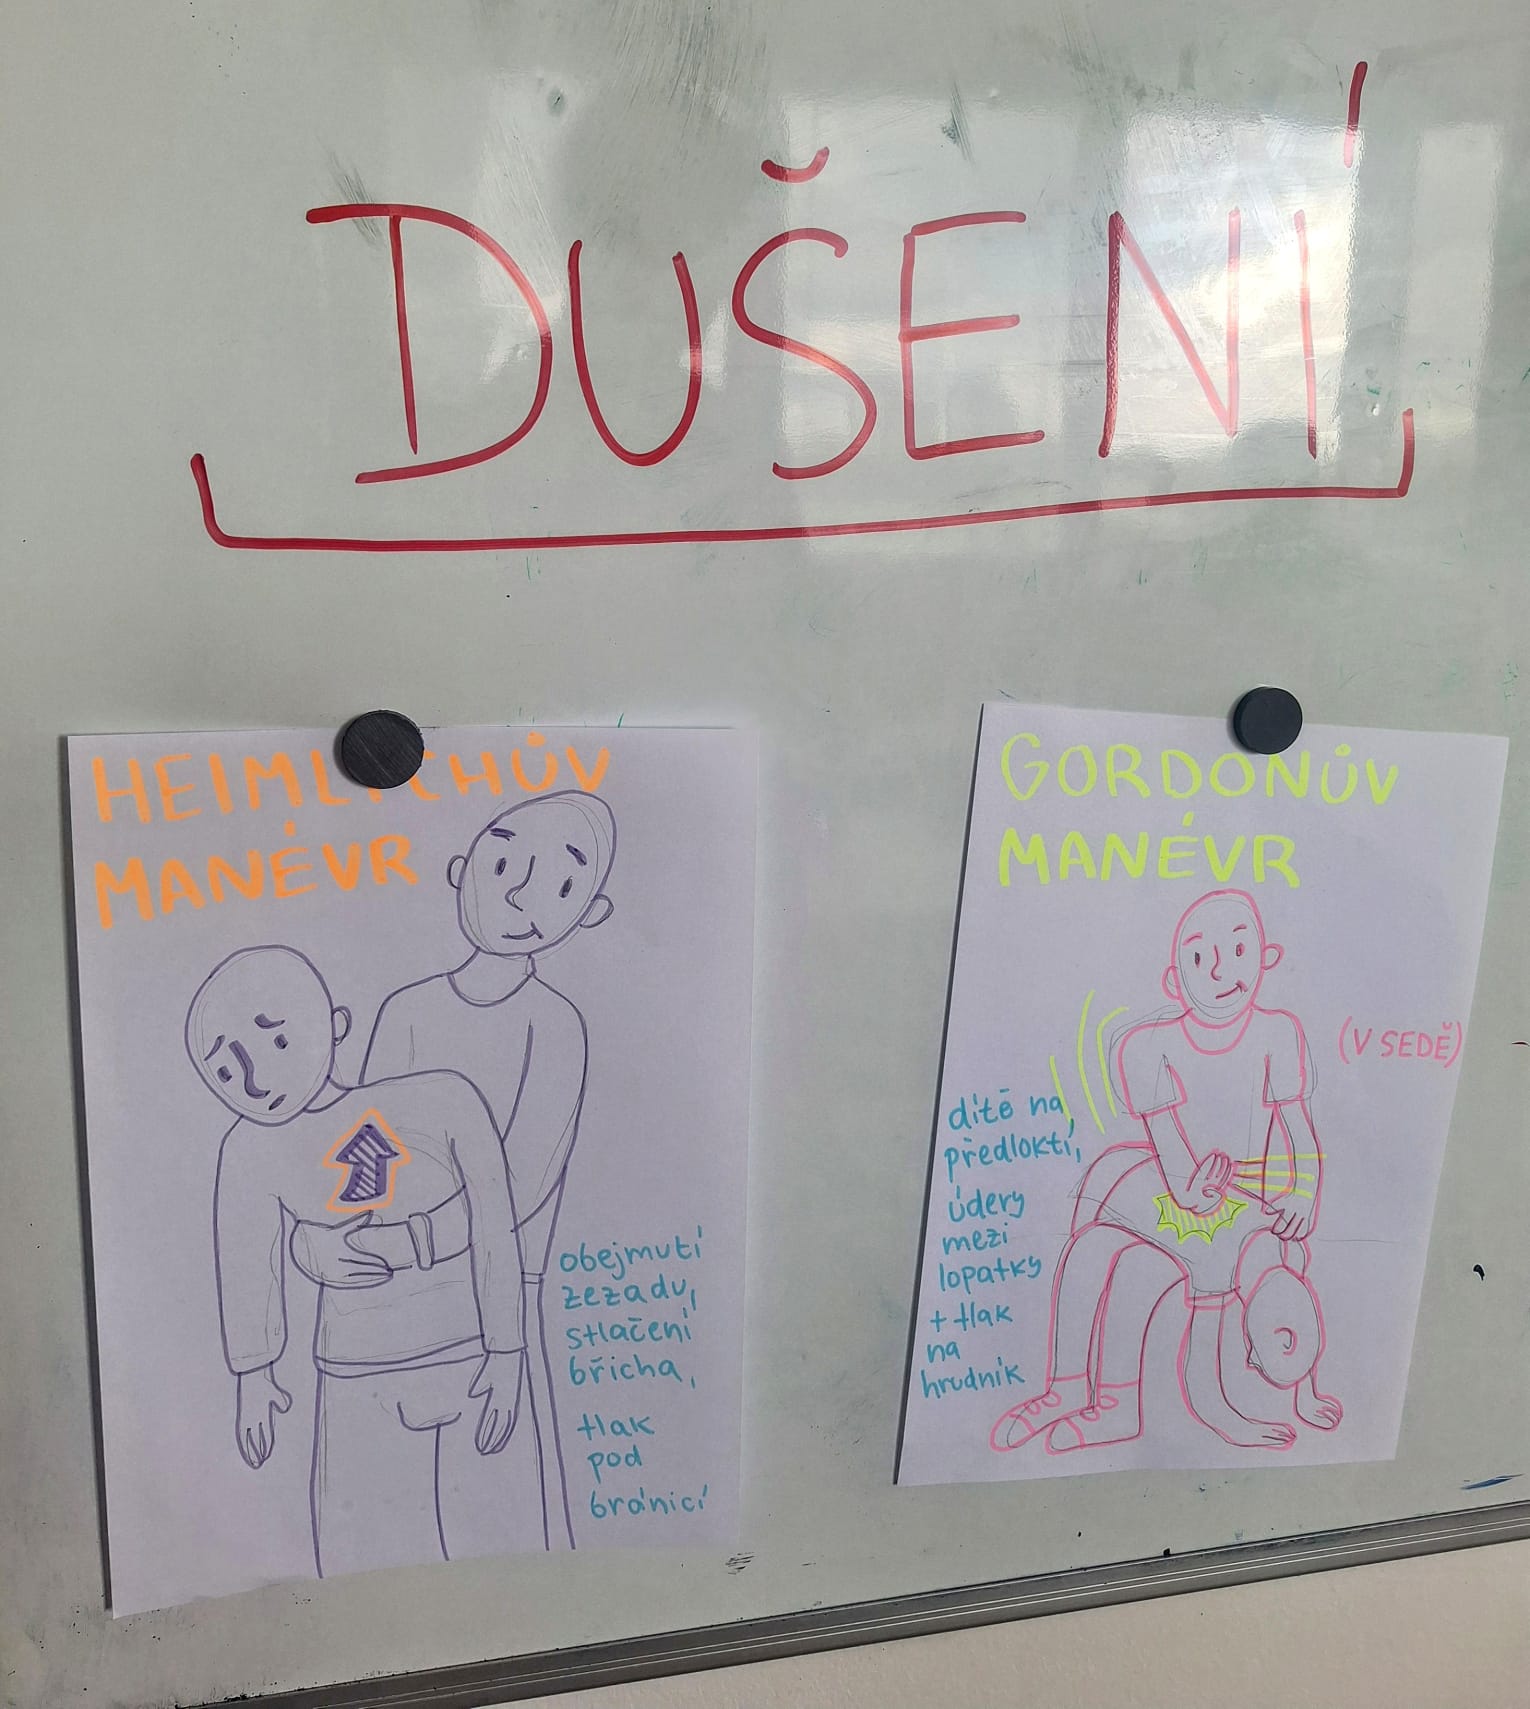 DUŠENÍ
HEIMLICHŮV
MANÉVR
obejmutí
zezadu,
stlačení
břicha,
tlak
pod
bránicí
GORDONŮV
MANÉVR
(V SEDĚ)
dítě na
předloktí,
údery
mezi
lopatky
+ tlak
na
hrudník